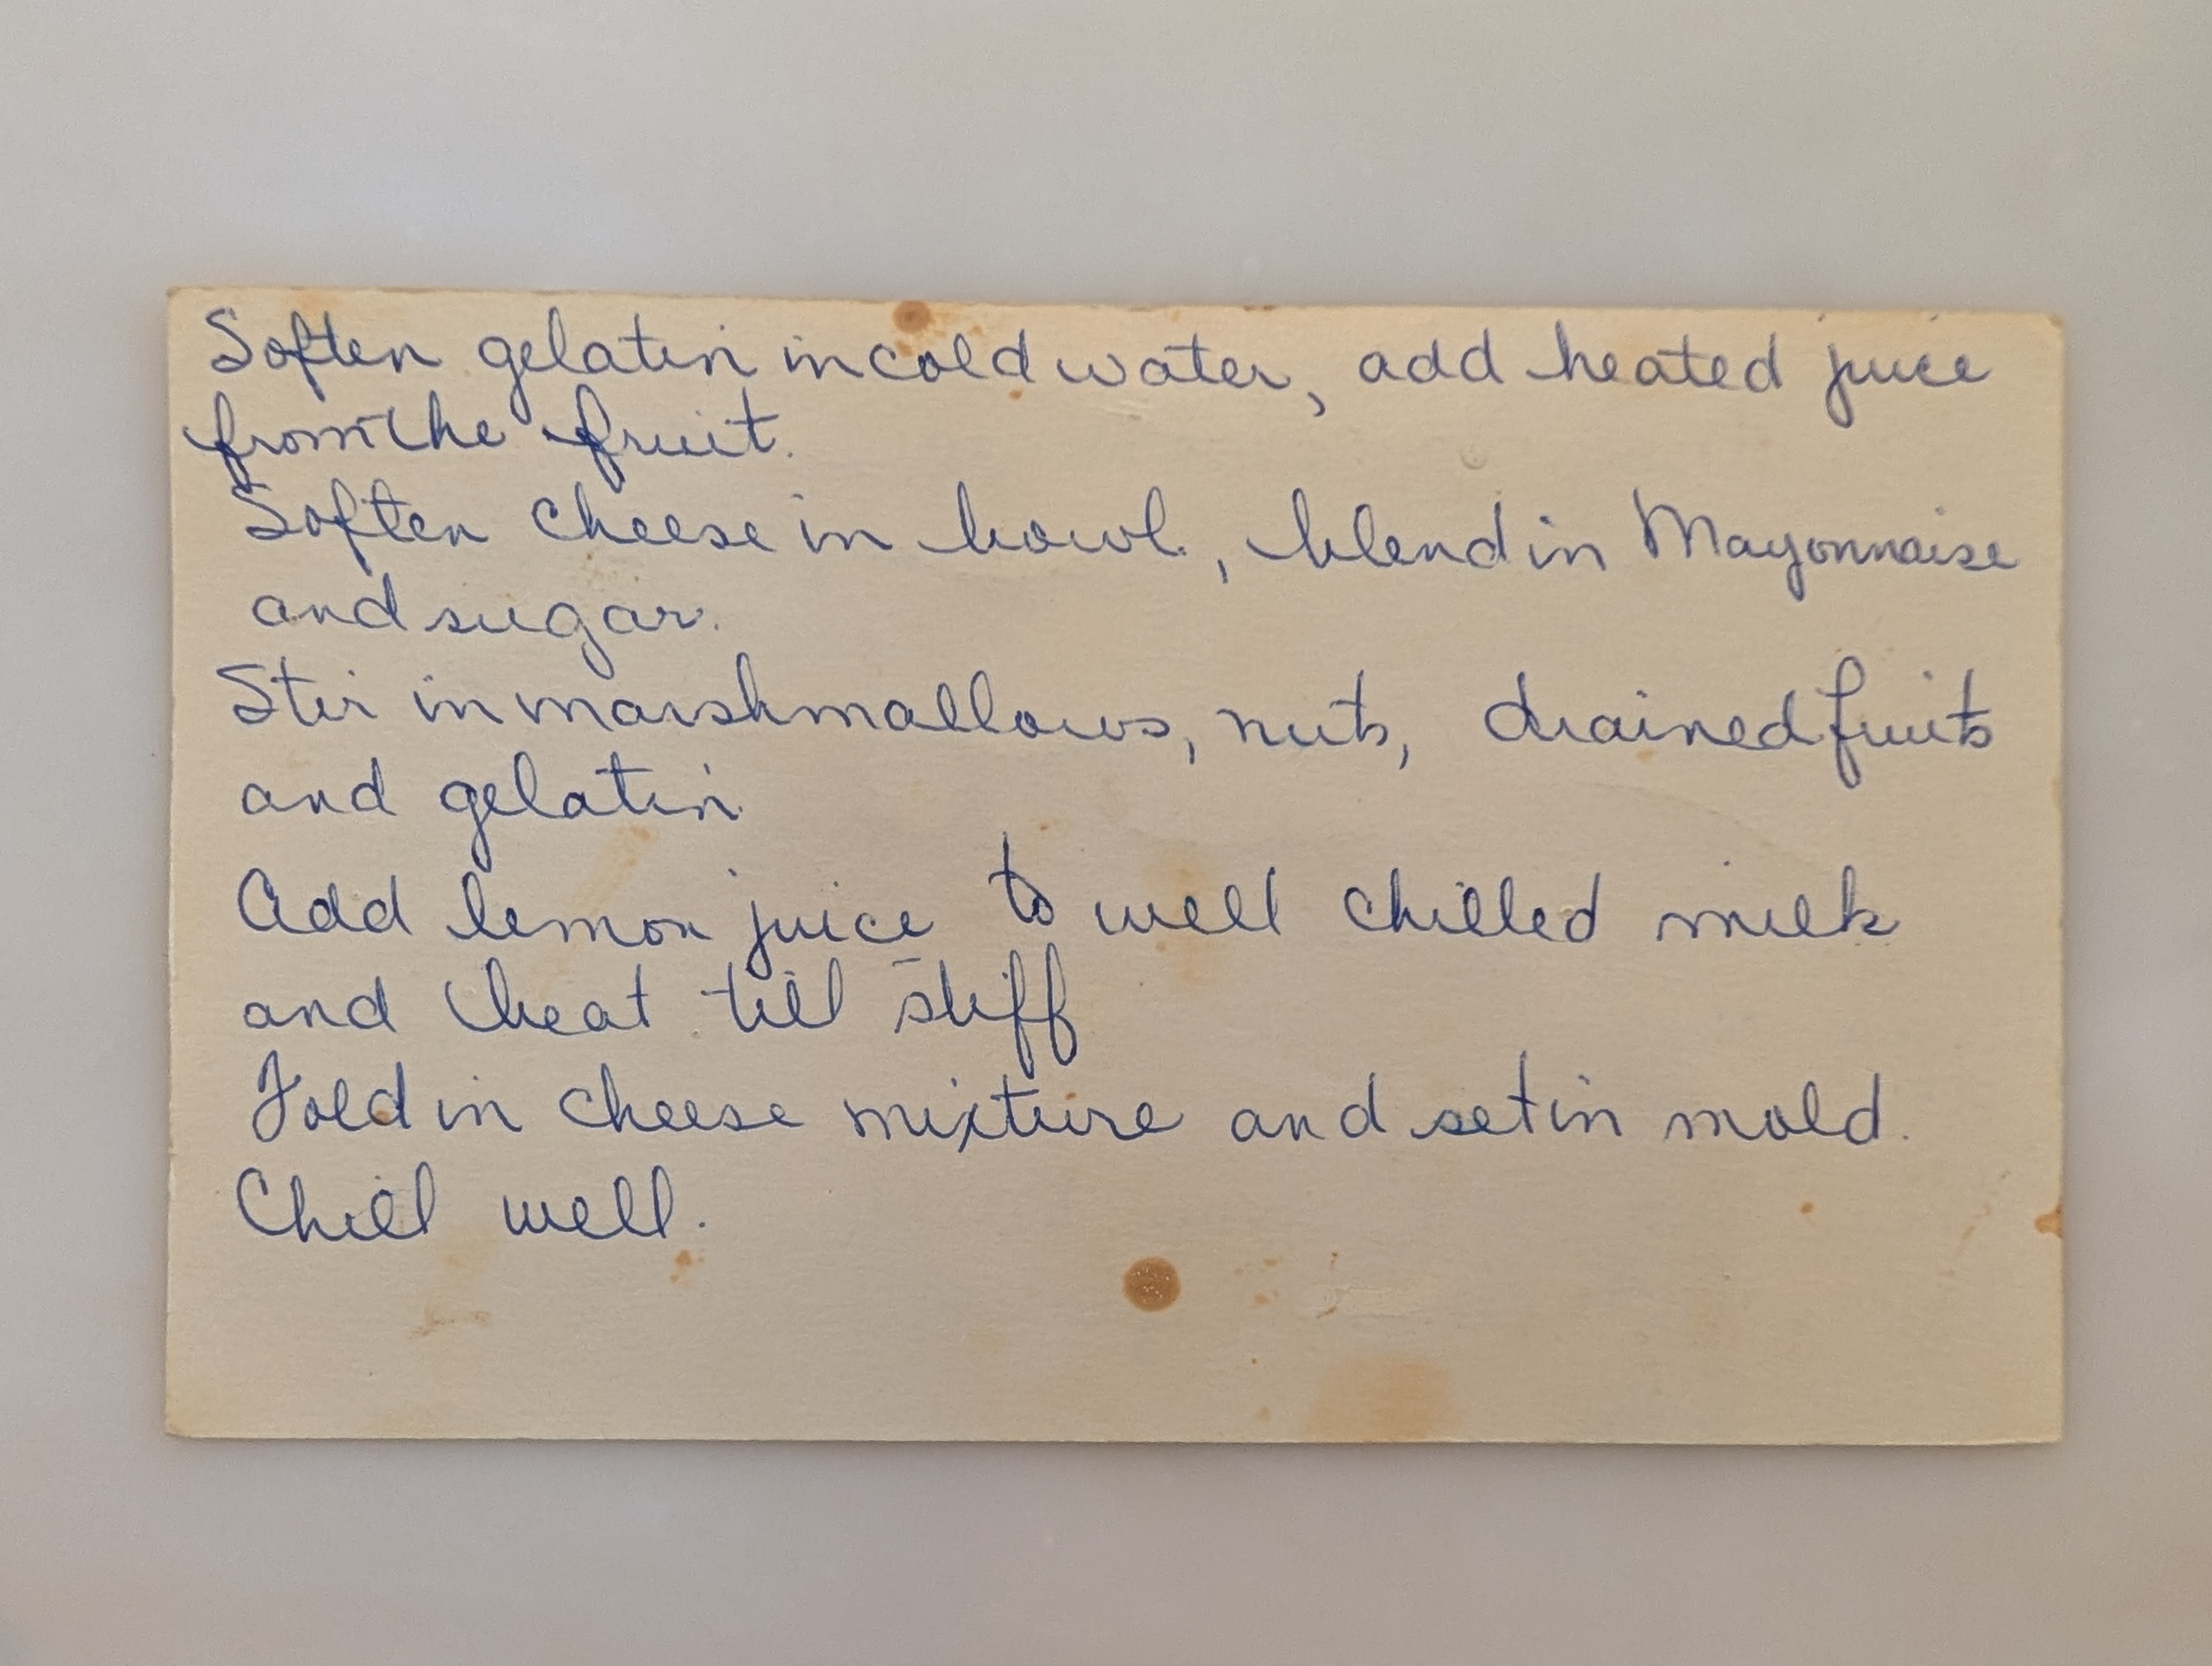 Soften gelatin in cold water, add heated juice
from the fruit.
Soften cheese in bowl, blend in Mayonnaise
and sugar.
Stir in marshmallows, nuts, drained fruits
and gelatin
Add lemon juice to well chilled milk
and beat till stiff
Fold in cheese mixture and set in mold.
Chill well.